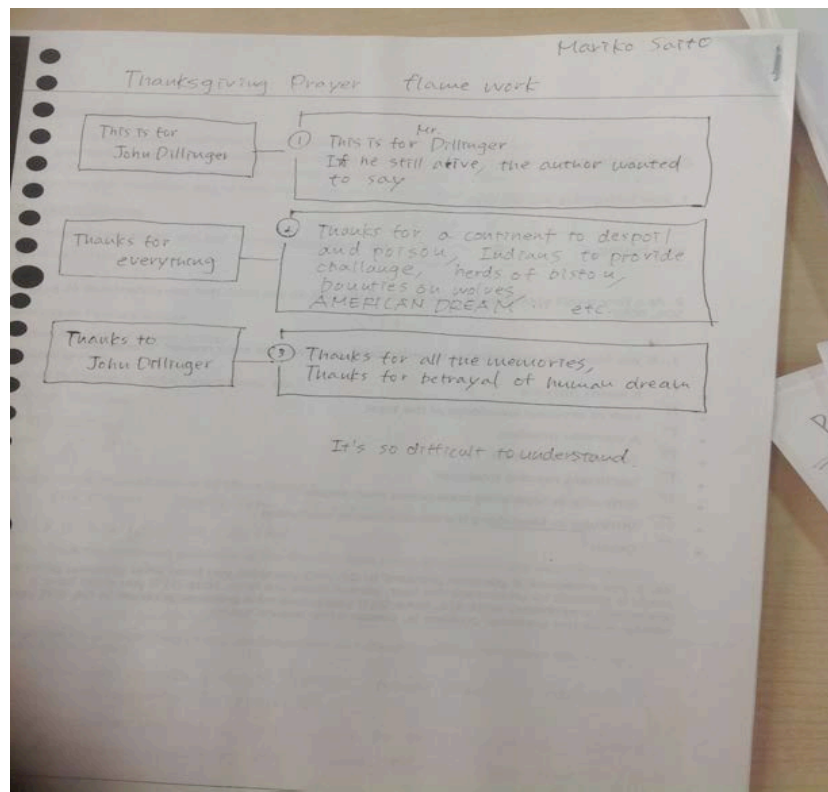 Mariko Saito
Thanksgiving Prayer flame work
This is for
John Dillinger
① This is for Mr. Dillinger
If he still ative, the author wanted
to say
Thanks for
everything
② Thanks for a continent to despoil
and poison, Indians to provide
challauge, herds of bison,
bounties on wolves,
AMERICAN DREAM ... etc.
Thanks to
John Dillinger
③ Thanks for all the memories,
Thanks for betrayal of human dream
It's so difficult to understand.